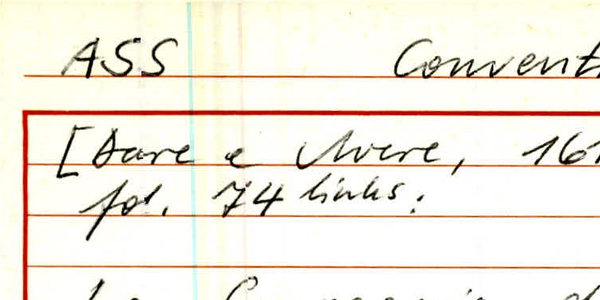 ASS Convent
[Dare e Avere, 161
fol. 74 links: